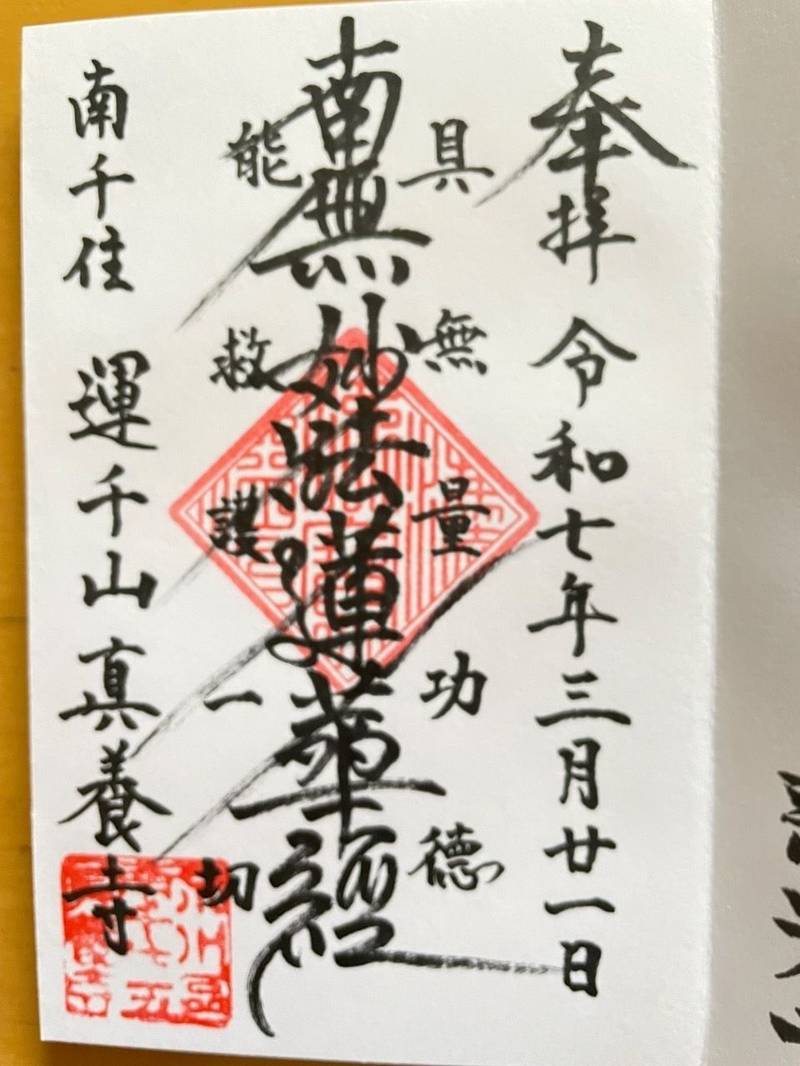 奉拝 令和七年三月廿一日
具無量功徳
南無妙法蓮華経
能救護一切
南千住 運千山真養寺